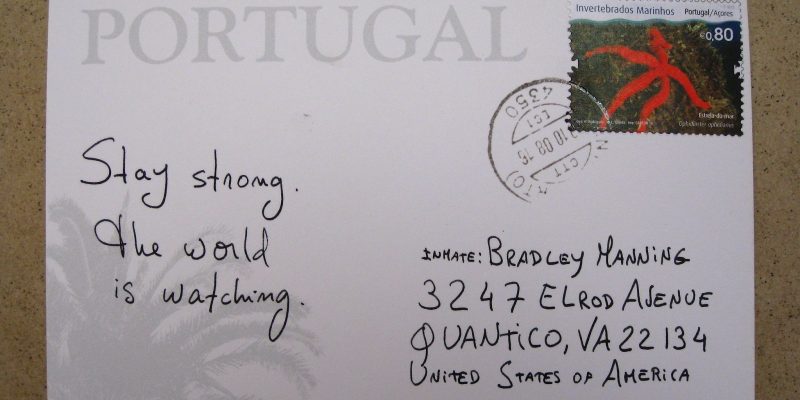 PORTUGAL
Invertebrados Marinhos
Portugal/Açores
€0,80
Estrela-do-mar
Ophidiaster ophidianus
4350
CTT
Stay strong.
the world
is watching.
INMATE: BRADLEY MANNING
3247 ELROD AVENUE
QUANTICO, VA 22134
UNITED STATES OF AMERICA